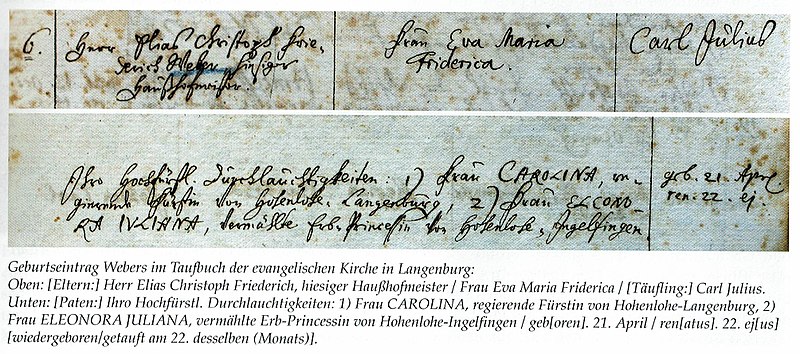 6.
Herr Elias Christoph Frie-
derich Weber, hiesiger
Haußhofmeister.
Frau Eva Maria
Friderica.
Carl Julius
Ihro Hochfürstl. Durchlauchtigkeiten: 1) Frau CAROLINA, re-
gierende Fürstin von Hohenlohe-Langenburg, 2) Frau ELEONO
RA IVLIANA, vermählte Erb-Princessin von Hohenlohe-Ingelfingen
geb. 21. April
ren. 22. ej.
Geburtseintrag Webers im Taufbuch der evangelischen Kirche in Langenburg:
Oben: [Eltern:] Herr Elias Christoph Friederich, hiesiger Haußhofmeister / Frau Eva Maria Friderica / [Täufling:] Carl Julius.
Unten: [Paten:] Ihro Hochfürstl. Durchlauchtigkeiten: 1) Frau CAROLINA, regierende Fürstin von Hohenlohe-Langenburg, 2)
Frau ELEONORA JULIANA, vermählte Erb-Princessin von Hohenlohe-Ingelfingen / geb[oren]. 21. April / ren[atus]. 22. ej[us]
[wiedergeboren/getauft am 22. desselben (Monats)].